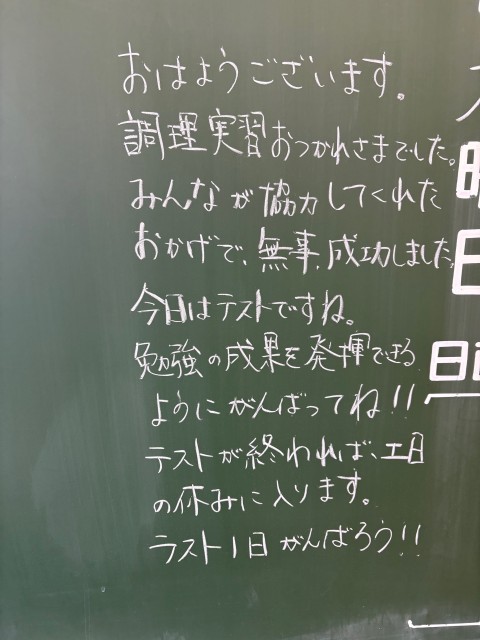 おはようございます。
調理実習おつかれさまでした。
みんなが協力してくれた
おかげで、無事、成功しました。
今日はテストですね。
勉強の成果を発揮できる
ようにがんばってね!!
テストが終われば、工日
の休みに入ります。
ラスト1日がんばろう!!
日